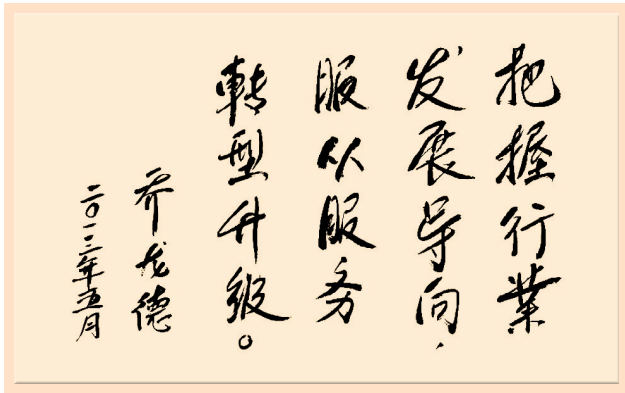 把握行業
发展导向，
服从服务
轉型升级。
乔茂德
二〇一三年五月